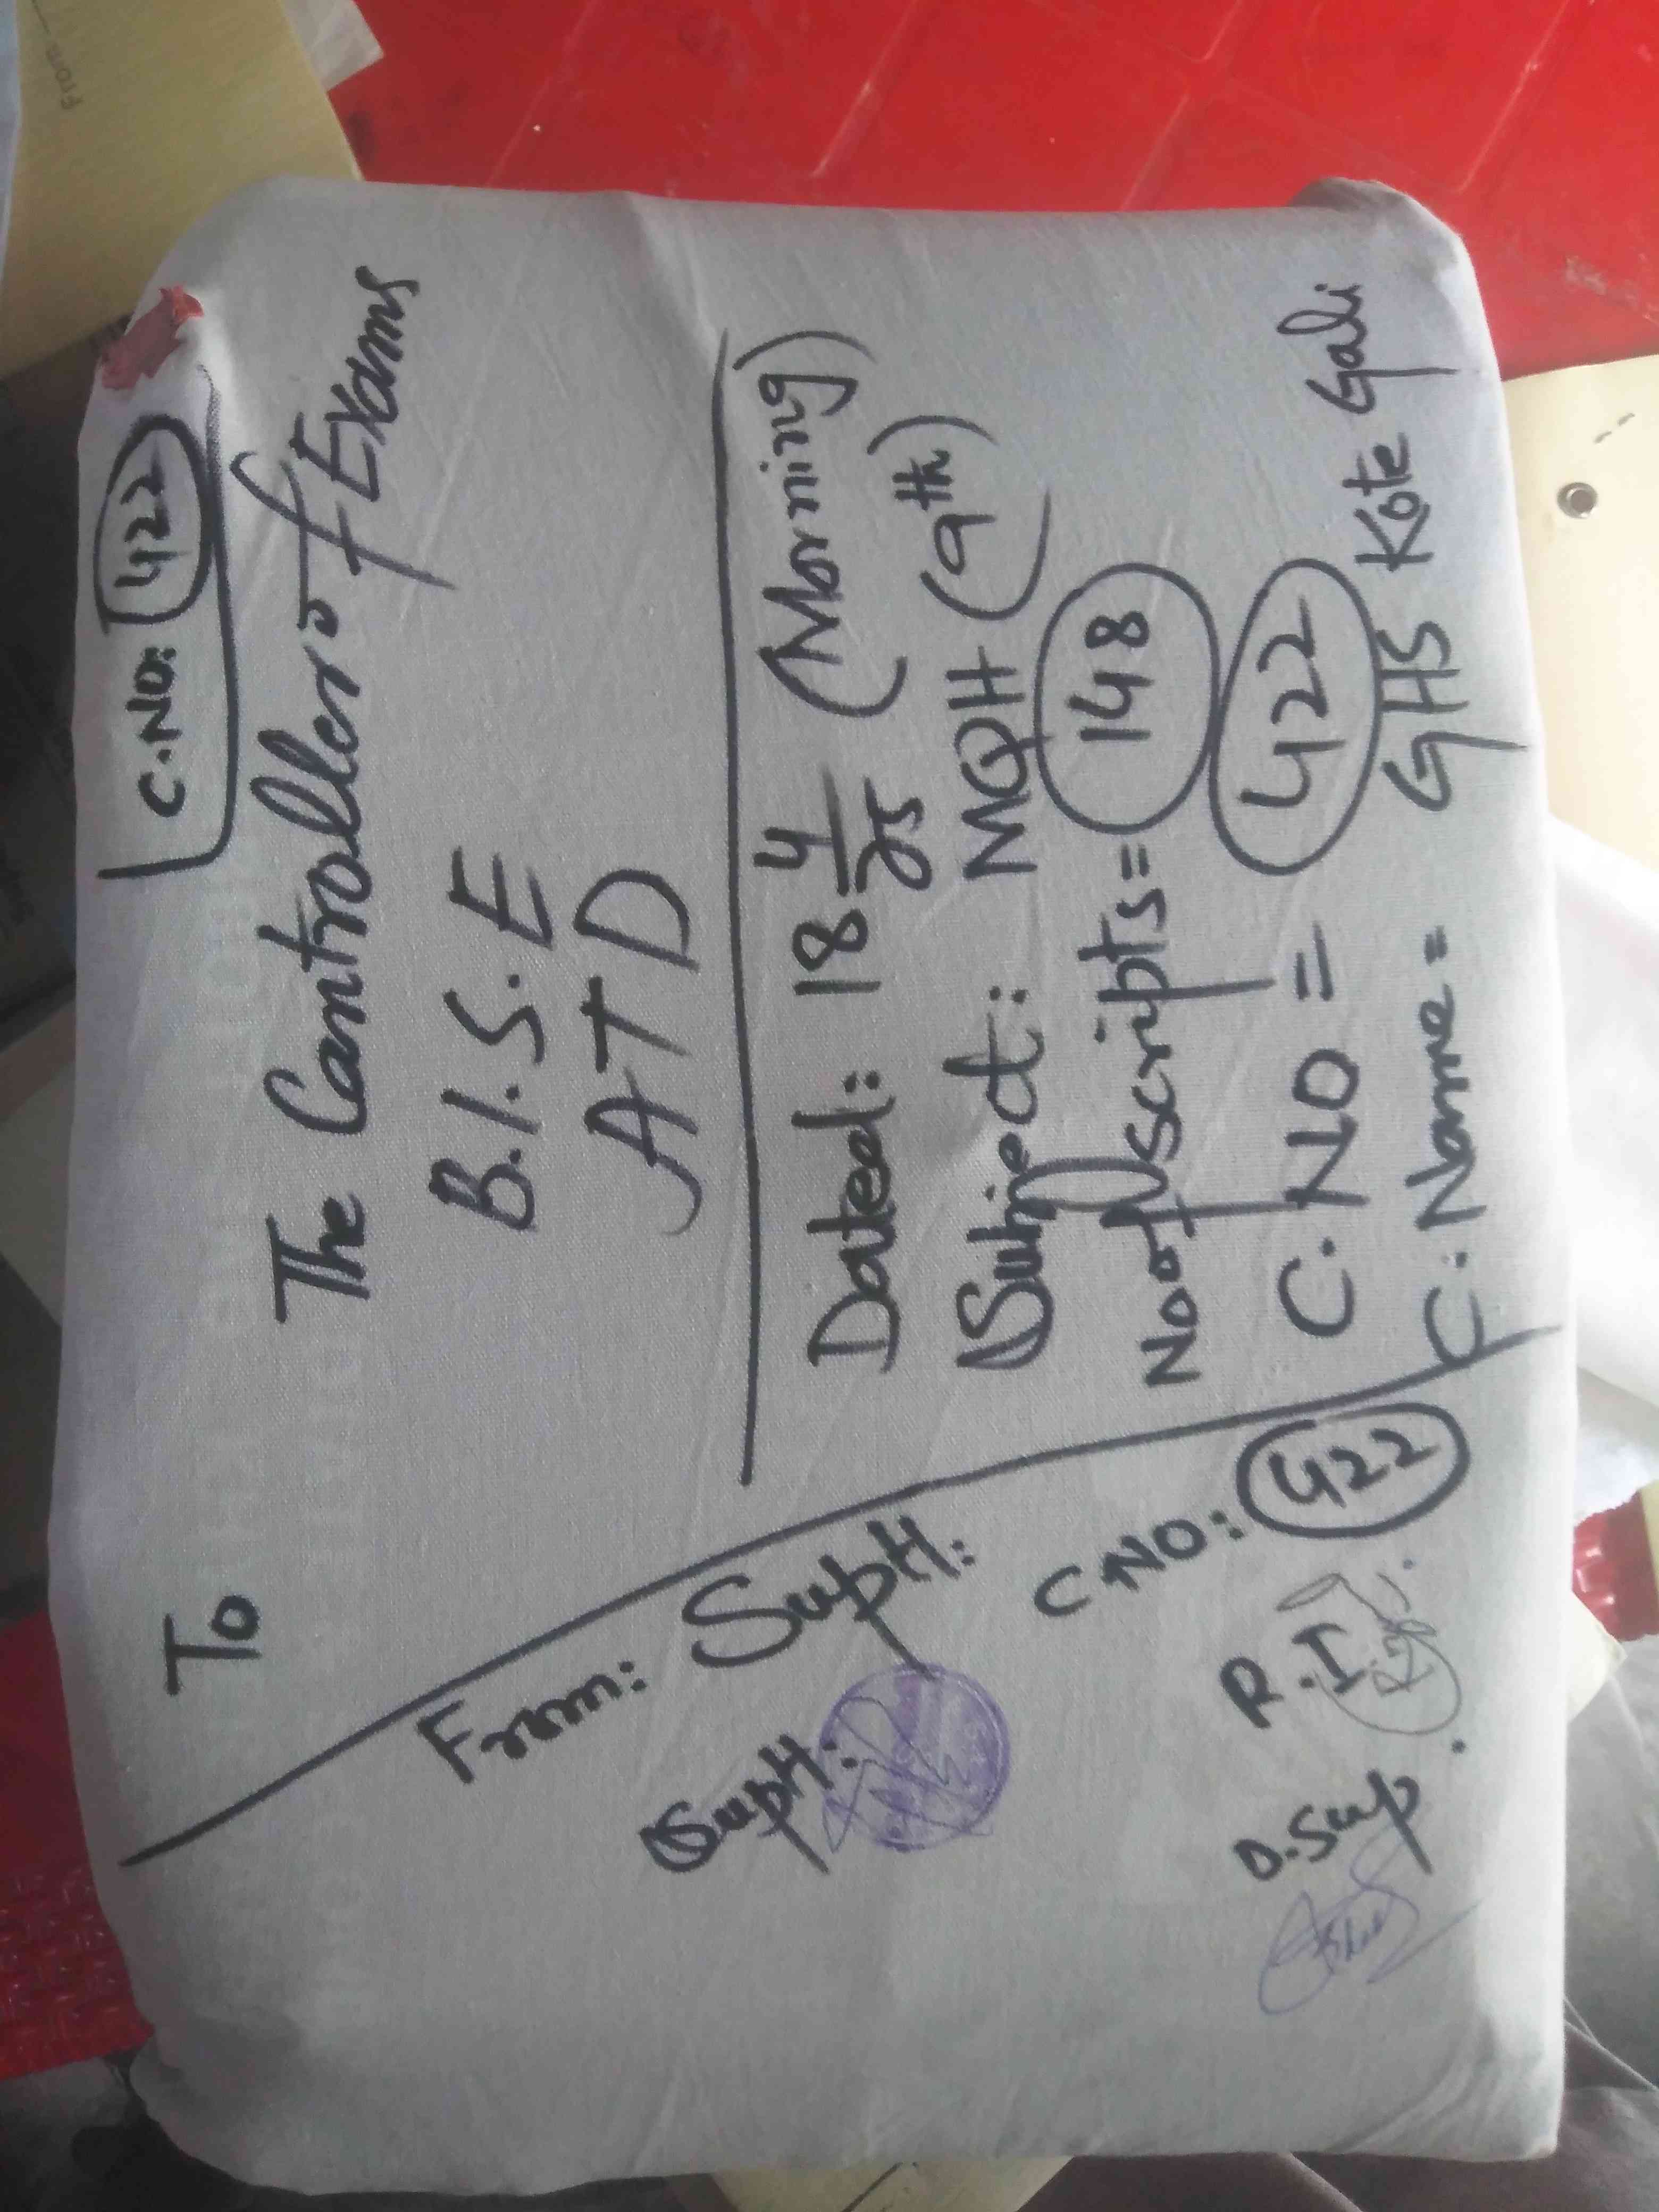 C.NO: 422
To
The Controller of Exams
B.I.S.E
ATD
Dated: 18 4/25 (Morning)
Subject: MQH (9th)
No of scripts = 148
C.NO = 422
C.Name = GHS Kote Gali
From: Supt:
C NO: 422
Supt:
R.I
D.Sup.
From